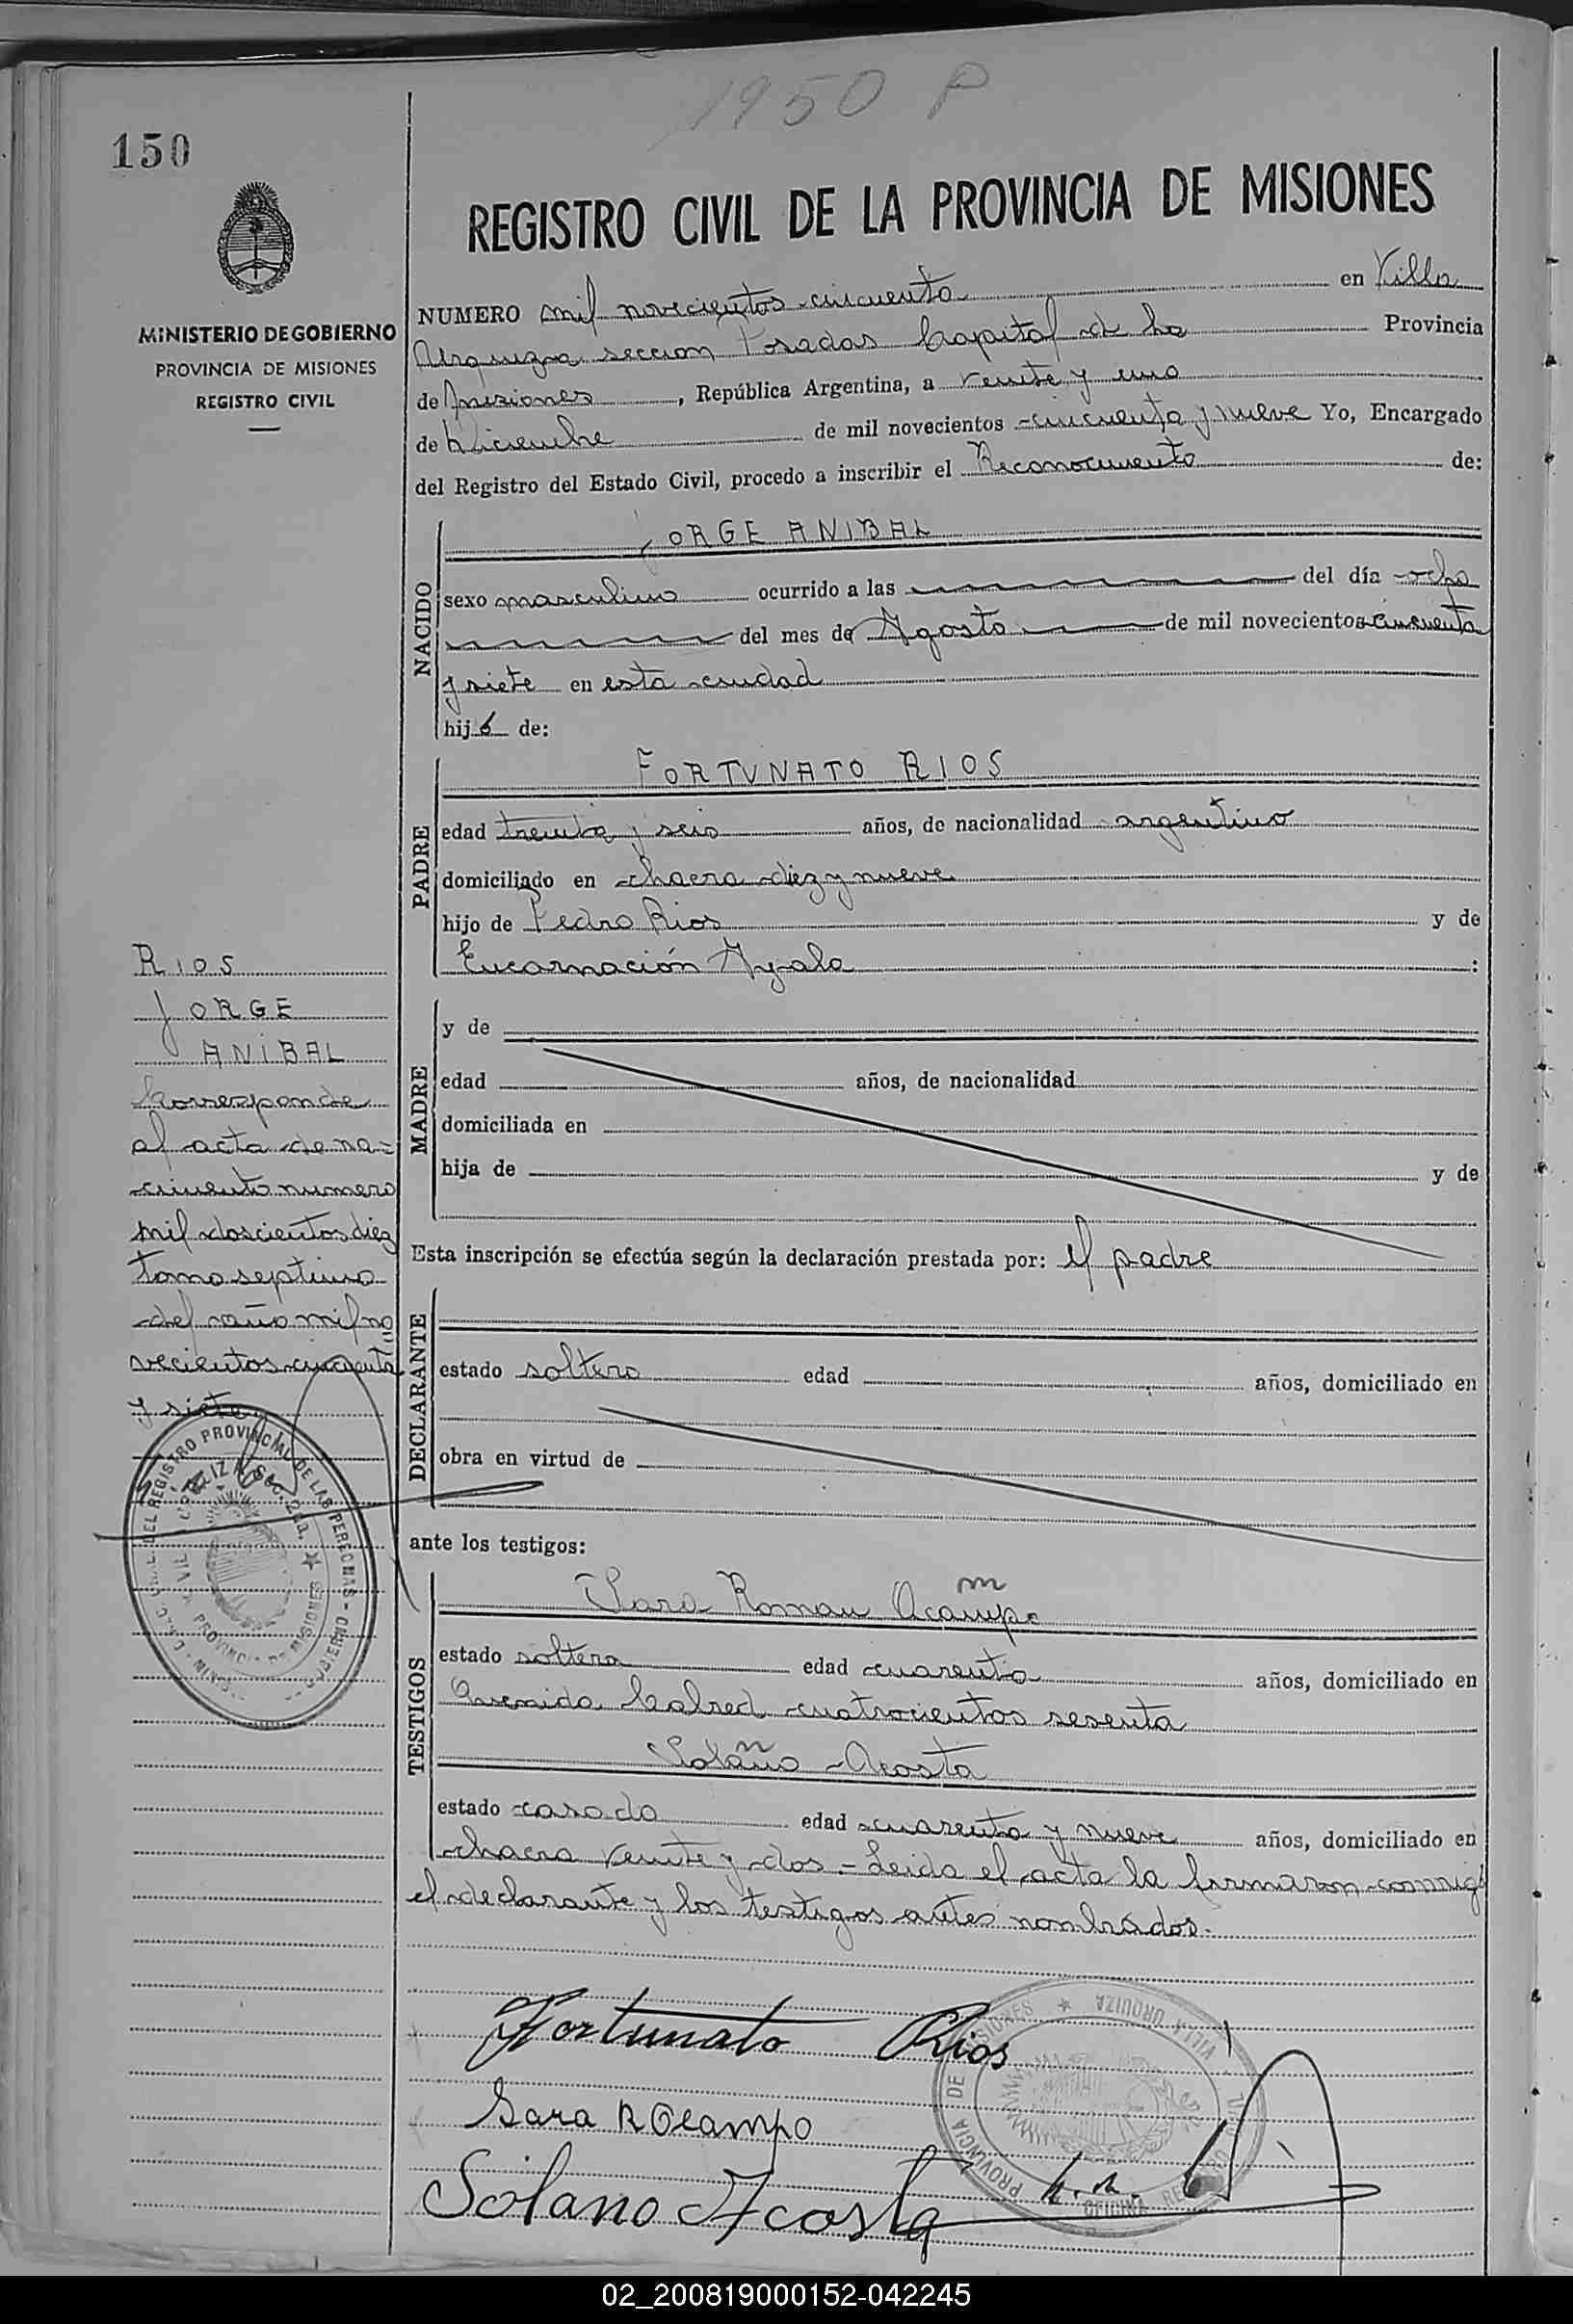 1950 P
150
REGISTRO CIVIL DE LA PROVINCIA DE MISIONES
MINISTERIO DE GOBIERNO
PROVINCIA DE MISIONES
REGISTRO CIVIL
NUMERO mil novecientos cincuenta en Villa
Urquiza seccion Posadas Capital de la Provincia
de Misiones, República Argentina, a veinte y uno
de Diciembre de mil novecientos cincuenta y nueve Yo, Encargado
del Registro del Estado Civil, procedo a inscribir el Reconocimiento de:
NACIDO
JORGE ANIBAL
sexo masculino ocurrido a las del día ocho
del mes de Agosto de mil novecientos cincuenta
y siete en esta ciudad
hijo de:
PADRE
FORTUNATO RIOS
edad treinta y seis años, de nacionalidad argentino
domiciliado en chacra diez y nueve
hijo de Pedro Rios y de
Encarnación Ayala :
MADRE
y de
edad años, de nacionalidad
domiciliada en
hija de y de
Esta inscripción se efectúa según la declaración prestada por: el padre
DECLARANTE
estado soltero edad años, domiciliado en
obra en virtud de
ante los testigos:
TESTIGOS
Sara Roman Ocampo
estado soltera edad cuarenta años, domiciliado en
Avenida cuatrocientos sesenta
Solano Acosta
estado casado edad cuarenta y nueve años, domiciliado en
chacra veinte y dos.- Leida el acta la firmaron conmigo
el declarante y los testigos antes nombrados.
RIOS
JORGE
ANIBAL
Corresponde
al acta de na-
cimiento numero
mil doscientos diez
tomo septimo
del año mil no
vecientos cincuenta
y siete
REGISTRO PROVINCIAL DE LAS PERSONAS
Sec. 2da.
PROVINCIA DE MISIONES
Fortunato Rios
Sara R Ocampo
Solano Acosta
VILLA URQUIZA
PROVINCIA DE MISIONES
OFICINA
02_200819000152-042245